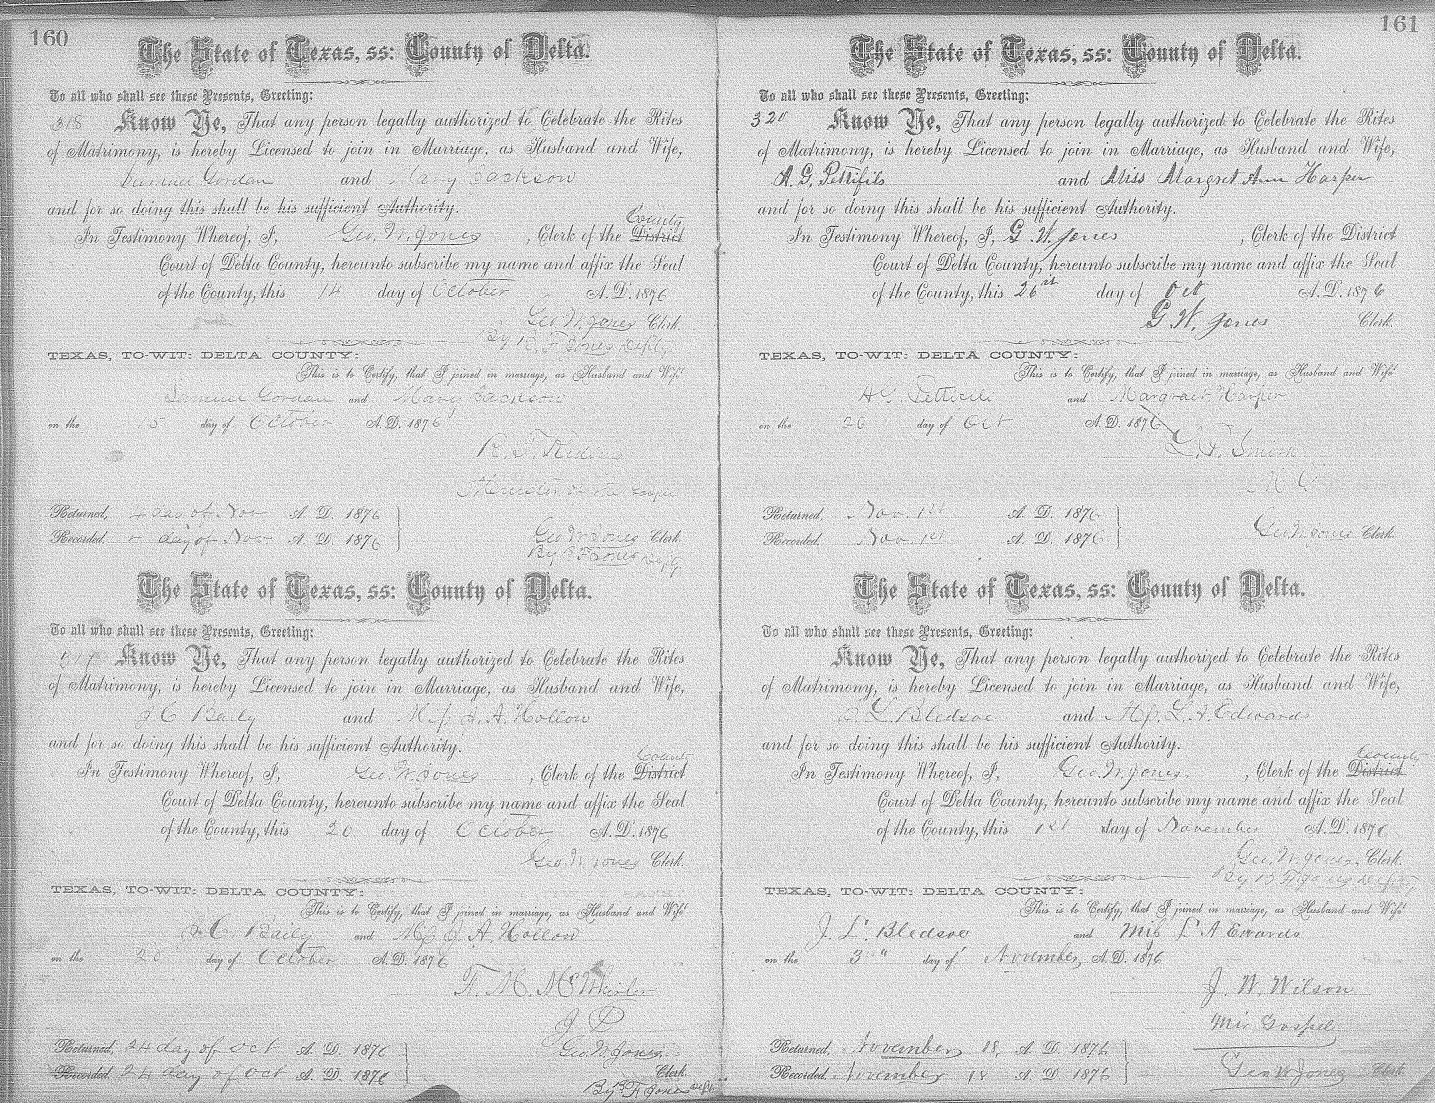 160
The State of Texas, ss: County of Delta.
To all who shall see these Presents, Greeting:
318 Know Ye, That any person legally authorized to Celebrate the Rites
of Matrimony, is hereby Licensed to join in Marriage, as Husband and Wife,
Samuel Gordan and Mary Jackson
and for so doing this shall be his sufficient Authority.
County
In Testimony Whereof, I, Geo. W. Jones, Clerk of the District
Court of Delta County, hereunto subscribe my name and affix the Seal
of the County, this 14 day of October A. D. 1876
Geo W. Jones Clerk.
By B. F. Jones Depty
TEXAS, TO-WIT: DELTA COUNTY:
This is to Certify, that I joined in marriage, as Husband and Wife
Samuel Gordan and Mary Jackson
on the 15 day of October A. D. 1876
R. F.
Minister of the Gospel
Returned, day of Nov A. D. 1876
Recorded day of Nov A. D. 1876
Geo W Jones Clerk
By B F Jones Depty
The State of Texas, ss: County of Delta.
To all who shall see these Presents, Greeting:
Know Ye, That any person legally authorized to Celebrate the Rites
of Matrimony, is hereby Licensed to join in Marriage, as Husband and Wife,
Baily and Miss A. Hollow
and for so doing this shall be his sufficient Authority.
County
In Testimony Whereof, I, Geo. W. Jones, Clerk of the District
Court of Delta County, hereunto subscribe my name and affix the Seal
of the County, this 20 day of October A. D. 1876
Geo. W. Jones Clerk.
TEXAS, TO-WIT: DELTA COUNTY:
This is to Certify, that I joined in marriage, as Husband and Wife
Baily and Miss A Hollow
on the 20 day of October A. D. 1876
F. M. McWhirter
J P
Returned, 24 day of Oct A. D. 1876
Recorded 24 day of Oct A. D. 1876
Geo W Jones
Clerk
By B F Jones Depty
161
The State of Texas, ss: County of Delta.
To all who shall see these Presents, Greeting:
320 Know Ye, That any person legally authorized to Celebrate the Rites
of Matrimony, is hereby Licensed to join in Marriage, as Husband and Wife,
A. G. Pettifils and Miss Margret Ann Harper
and for so doing this shall be his sufficient Authority.
In Testimony Whereof, I, G. W. Jones, Clerk of the District
Court of Delta County, hereunto subscribe my name and affix the Seal
of the County, this 26 day of Oct A. D. 1876
G. W. Jones Clerk.
TEXAS, TO-WIT: DELTA COUNTY:
This is to Certify, that I joined in marriage, as Husband and Wife
and Harper
on the 26 day of Oct A. D. 1876
Smith
Returned, Nov. 1st A. D. 1876
Recorded. Nov. 1st A. D. 1876
Geo W Jones Clerk
The State of Texas, ss: County of Delta.
To all who shall see these Presents, Greeting:
Know Ye, That any person legally authorized to Celebrate the Rites
of Matrimony, is hereby Licensed to join in Marriage, as Husband and Wife,
J. L. Bledsoe and Miss L. A. Edwards
and for so doing this shall be his sufficient Authority.
County
In Testimony Whereof, I, Geo. W. Jones., Clerk of the District
Court of Delta County, hereunto subscribe my name and affix the Seal
of the County, this 1st day of November A. D. 1876
Geo. W. Jones. Clerk.
By B F Jones Depty
TEXAS, TO-WIT: DELTA COUNTY:
This is to Certify, that I joined in marriage, as Husband and Wife
J. L. Bledsoe and Miss L A Ewards
on the 3 day of November, A. D. 1876
J. W. Wilson
Min Gospel
Returned, November 18, A. D. 1876
Recorded November 18 A. D. 1876
Geo W Jones Clerk